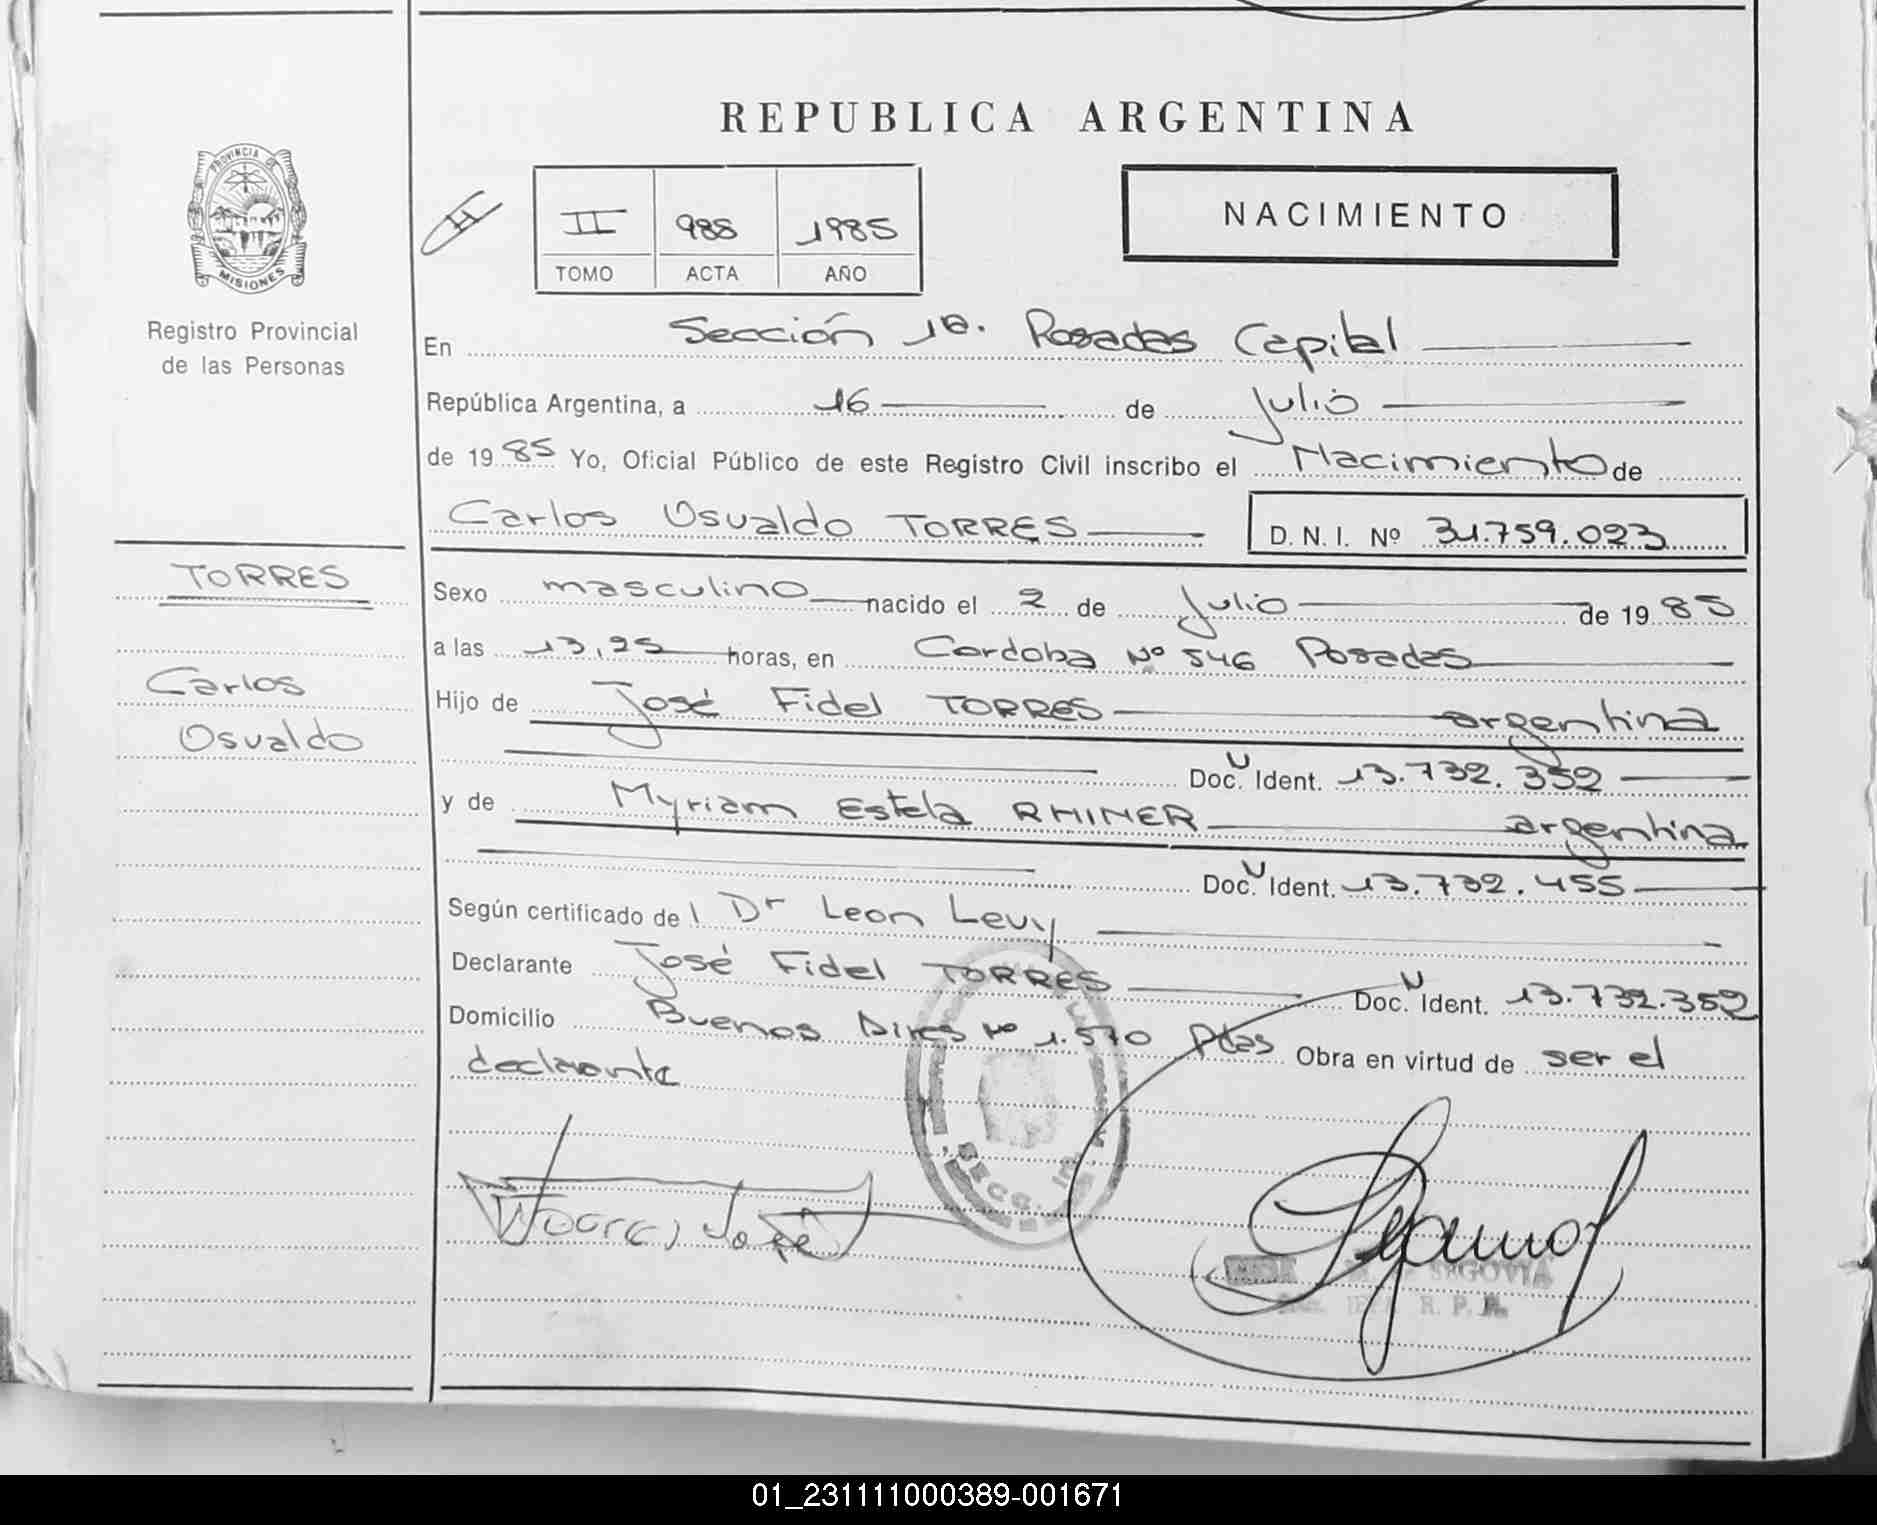 REPUBLICA ARGENTINA
PROVINCIA DE
MISIONES
Registro Provincial
de las Personas
II 988 1985
TOMO ACTA AÑO
NACIMIENTO
En Sección 1a. Posadas Capital
República Argentina, a 16 de Julio
de 1985 Yo, Oficial Público de este Registro Civil inscribo el Nacimiento de
Carlos Osvaldo TORRES D. N. I. Nº 31.759.023
TORRES
Carlos
Osvaldo
Sexo masculino nacido el 2 de Julio de 1985
a las 13,25 horas, en Cordoba Nº 546 Posadas
Hijo de José Fidel TORRES argentina
Doc. Ident. 13.732.352
y de Myriam Estela RHINER argentina
Doc. Ident. 13.732.455
Según certificado del Dr Leon Levy
Declarante José Fidel TORRES Doc. Ident. 13.732.352
Domicilio Buenos Aires Nº 1.570 Pdas Obra en virtud de ser el
declarante
SECC.
Torres José
SEGOVIA
R. P. P.
01_231111000389-001671